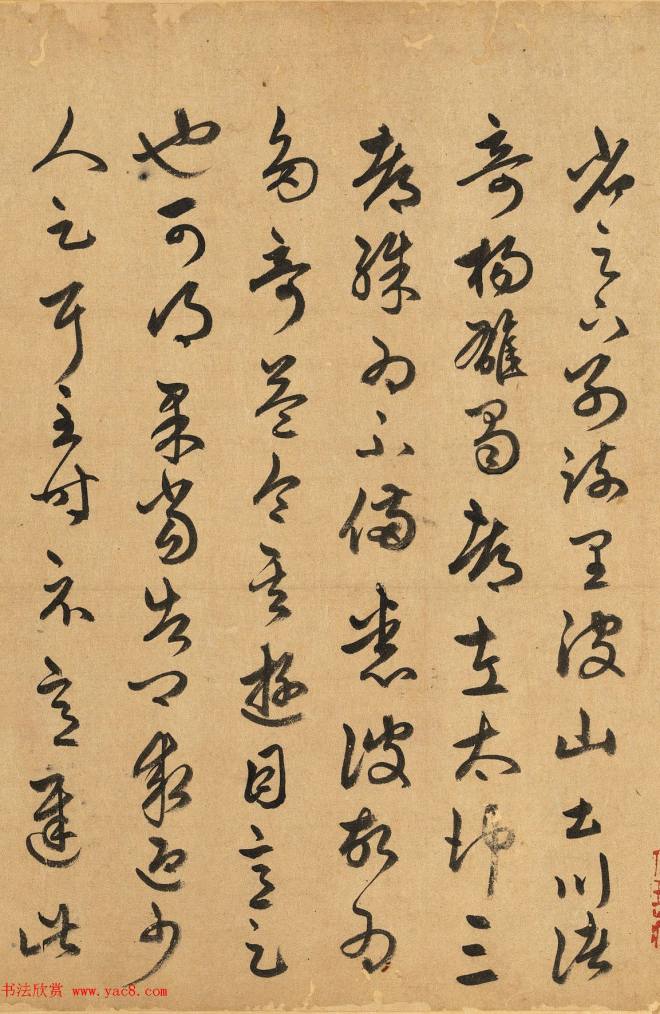 省足下別疏具彼山土川諸
奇揚雄蜀都左太沖三
都殊為不備悉彼故為
多奇益令其遊目意足
也可得果當告卿求迎少
人足耳至時示意遲此
书法欣赏 www.yac8.com